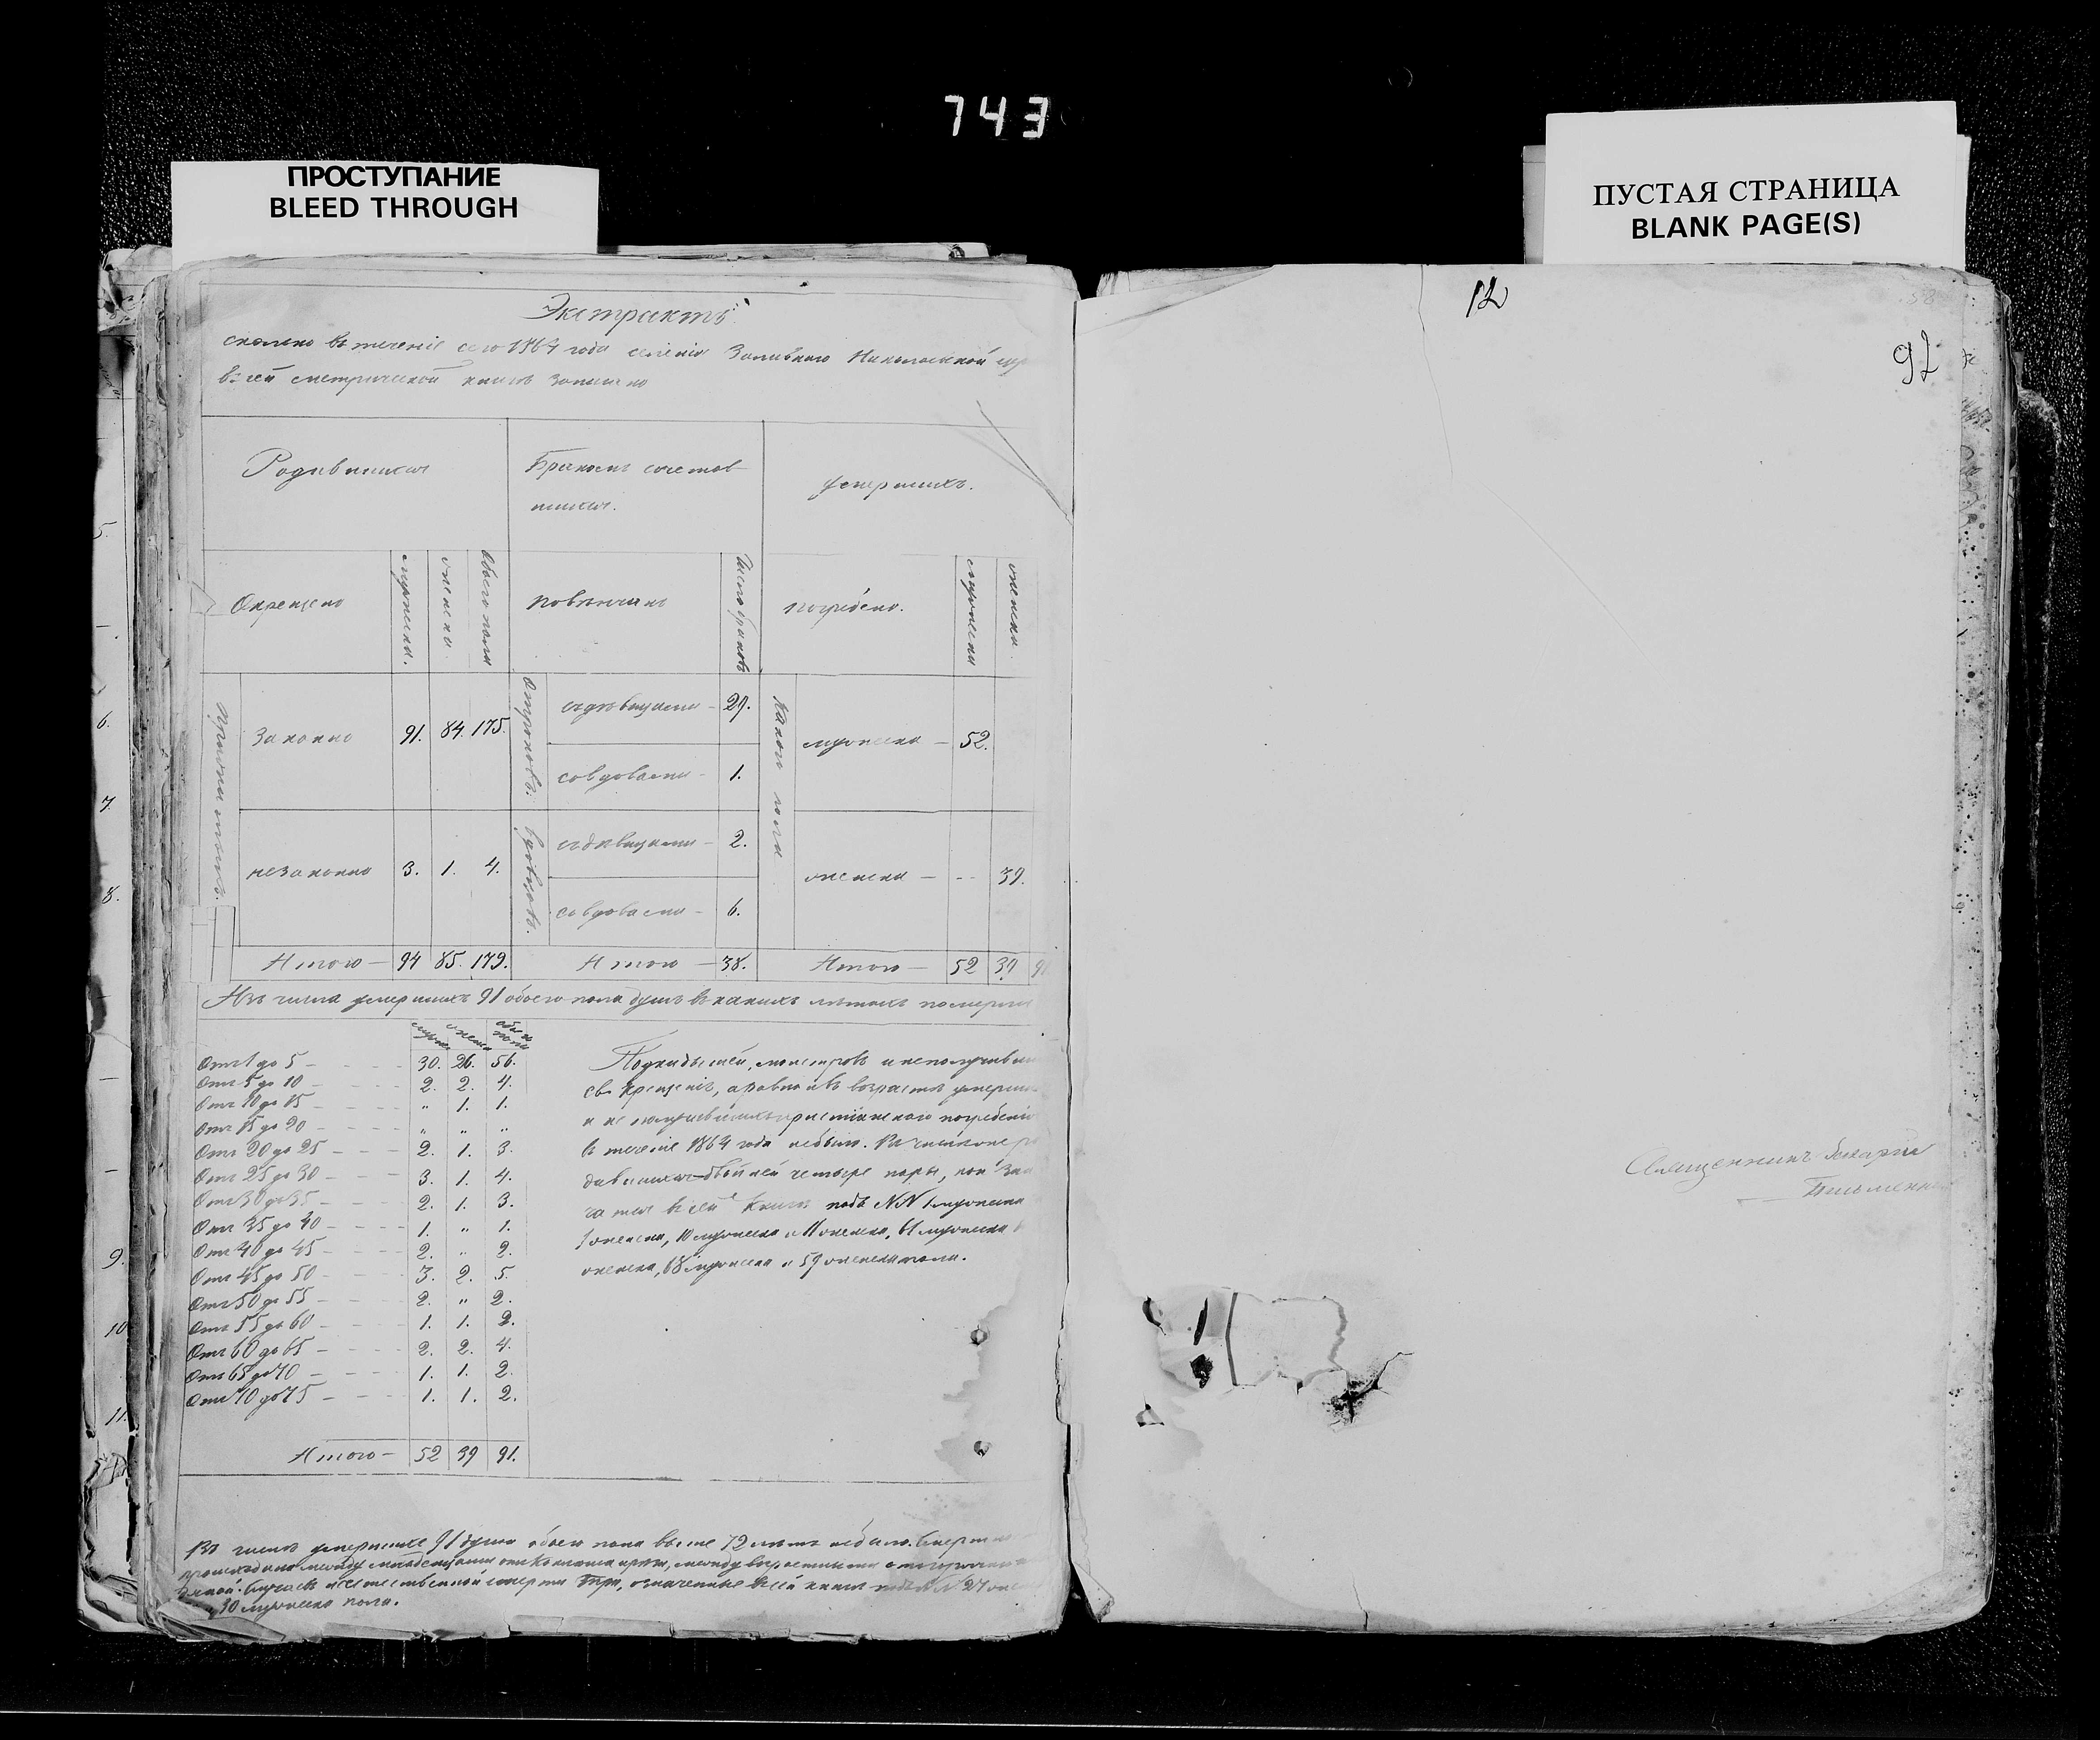 743
ПРОСТУПАНИЕ
BLEED THROUGH
ПУСТАЯ СТРАНИЦА
BLANK PAGE(S)
Экстрактъ
сколько въ теченіе сего 1864 года селенія Заливного Николаевской
въ сей метрической книгѣ записано
Родившихся
Бракомъ сочетав
шихся.
Умершихъ.
Окрещено
мужеска.
женска
Обоего пола
повѣнчано
Число браковъ
погребено.
мужеска
женска
Законно 91. 84. 175.
Отроковъ:
съ дѣвицами – 29.
со вдовами – 1.
Какого пола
мужеска – 52.
незаконно 3. 1. 4.
Вдовцовъ.
съ дѣвицами – 2.
со вдовами – 6.
женска – -- 39.
Итого – 94 85. 179.
Итого – 38.
Итого – 52 39 91
Изъ числа умершихъ 91 обоего пола душъ въ какихъ лѣтахъ померли
Отъ 1 до 5 – 30. 26. 56.
Отъ 5 до 10 – 2. 2. 4.
Отъ 10 до 15 – „ 1. 1.
Отъ 15 до 20 – „ „ „
Отъ 20 до 25 – 2. 1. 3.
Отъ 25 до 30 – 3. 1. 4.
Отъ 30 до 35 – 2. 1. 3.
Отъ 35 до 40 – 1. „ 1.
Отъ 40 до 45 – 2. „ 2.
Отъ 45 до 50 – 3. 2. 5.
Отъ 50 до 55 – 2. „ 2.
Отъ 55 до 60 – 1. 1. 2.
Отъ 60 до 65 – 2. 2. 4.
Отъ 65 до 70 – 1. 1. 2.
Отъ 70 до 75 – 1. 1. 2.
Итого – 52 39 91.
Подкидышей, монстровъ и неполучивши
св. крещенія, а равно и въ возрастѣ умерши
и не получившихъ христіанскаго погребенія
въ теченіе 1864 года небыло. Въ числѣ же ро
дившихся двойней четыре пары, кои зна
чатся въ сей книгѣ подъ №№ 1 мужеска
1 женска, 10 мужеска и 11 женска, 61 мужеска
женска, 68 мужеска и 59 женска пола.
Въ числѣ умершихъ 91 душа обоего пола выше 72 лѣтъ небыло. Смерт
происходила между младенцами отъ
между возрастными
Случаевъ
смерти три, означенные въ сей книгѣ подъ №№ 27
30 мужеска пола.
12
92
Священникъ
5.
6.
7.
8.
9.
10
11.